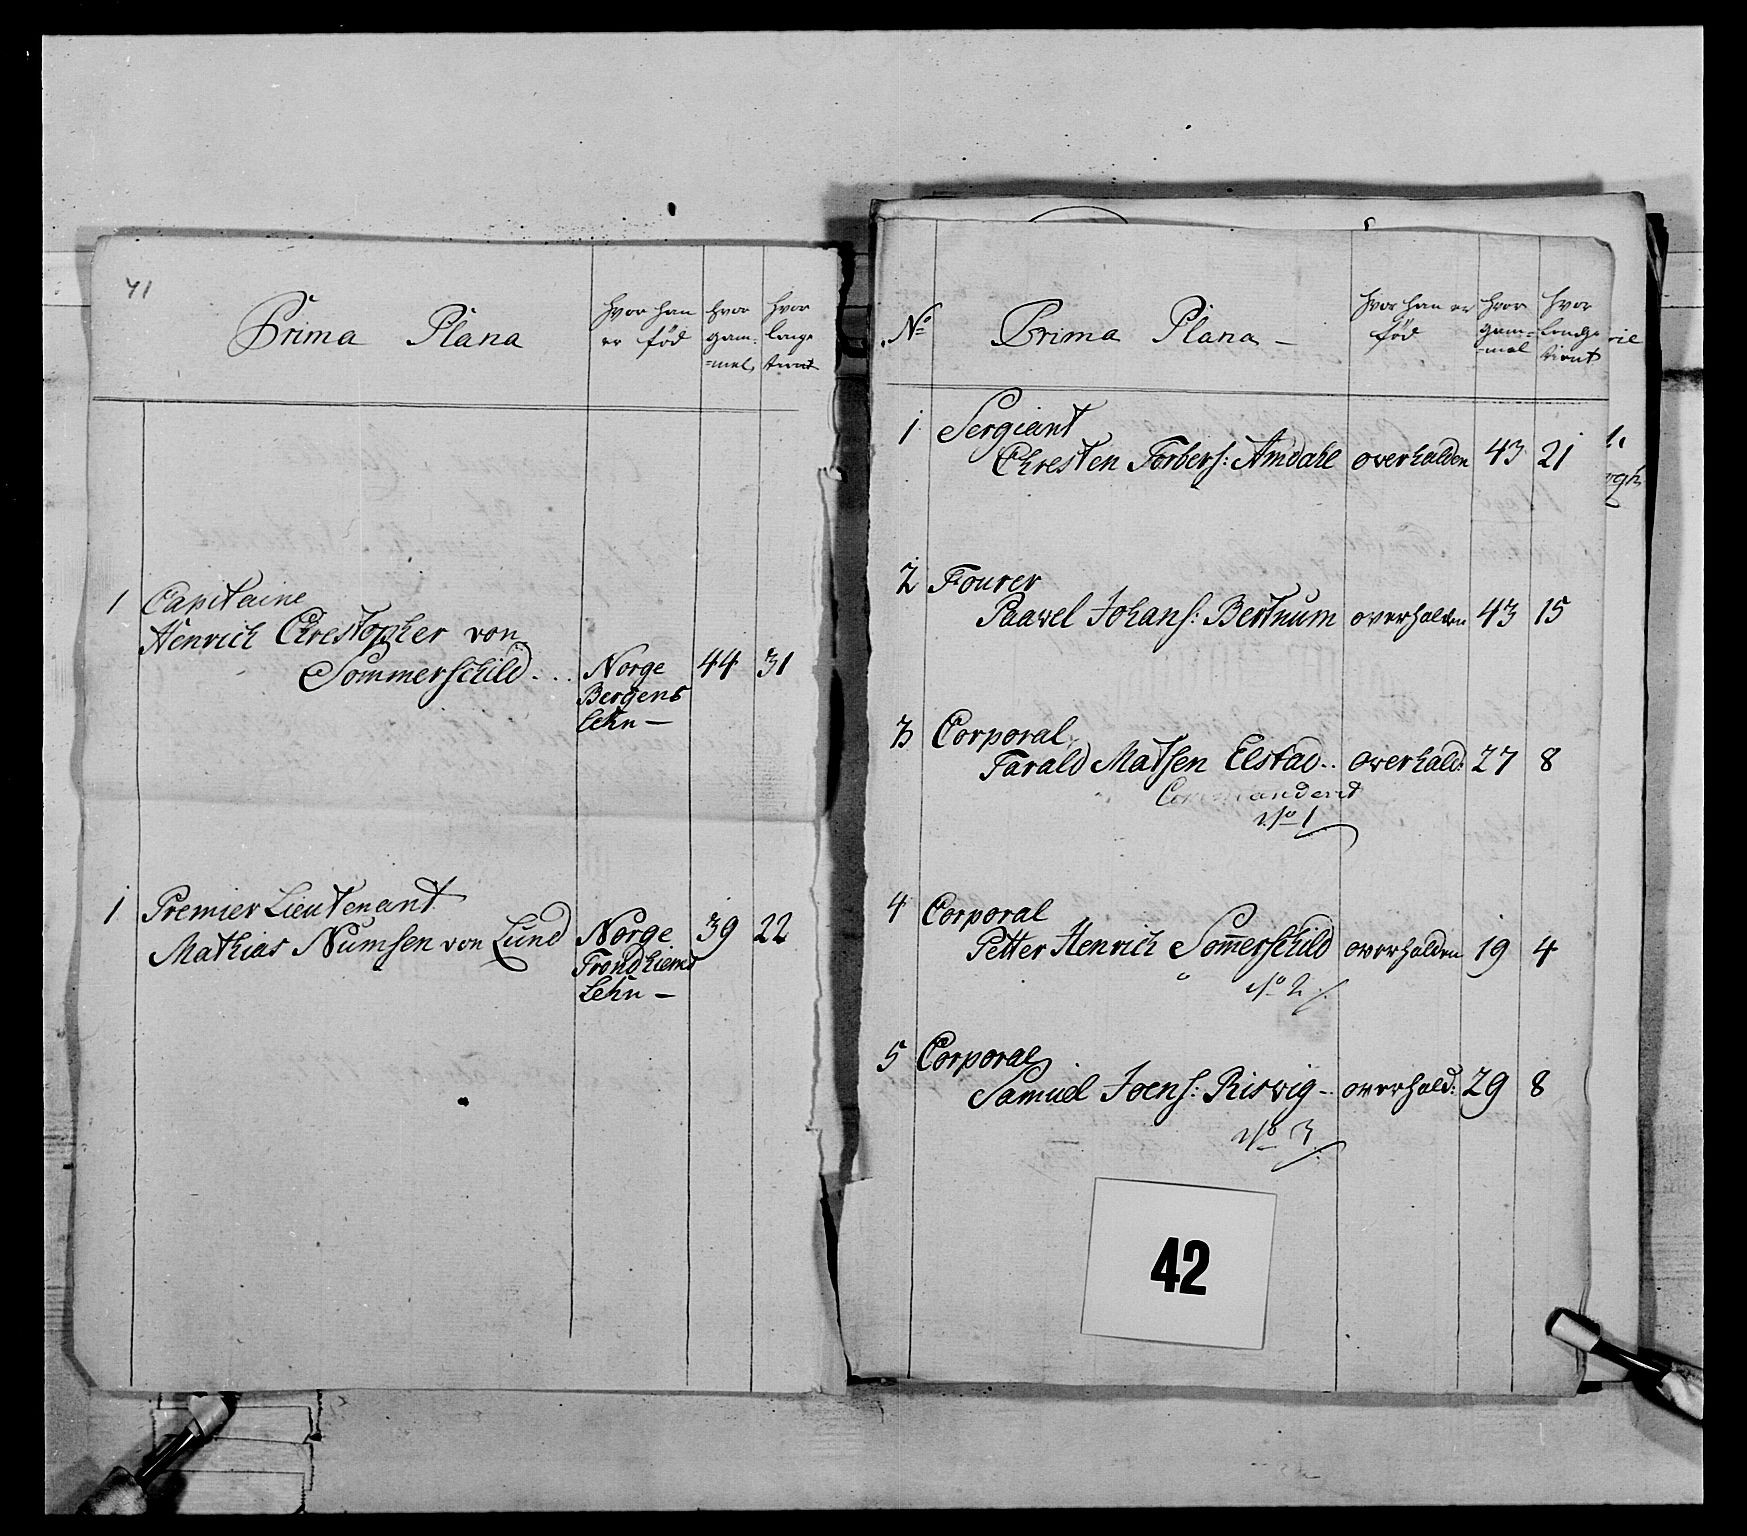 41
Prima Plana
hvor han er fød
hvor gam-mel
hvor lange tient
1 Capitaine
Henrich Chrestopher von
Sommerschild - .. Norge 44 31
Bergens
Lehn -
1 Premier Lieutenant
Mathias Numsen von Lund Norge 39 22
Trondhiems
Lehn -
No Prima Plana -
hvor han er fød
hvor gam=mel
hvor lenge tient
1 Sergiant
Chresten Torbers: Amdahl overhalden 43 21
2 Fourer
Paavel Johans: Bertnum overhalden 43 15
3 Corporal
Tarald Matsen Elstad.. overhald: 27 8
Commanderit
No 1
4 Corporal
Petter Henrich Som̄erschild overhalden 19 4
No 2 /.
5 Corporal
Samuel Joens: Risvig -. overhald: 29 8
No 3 /:
42